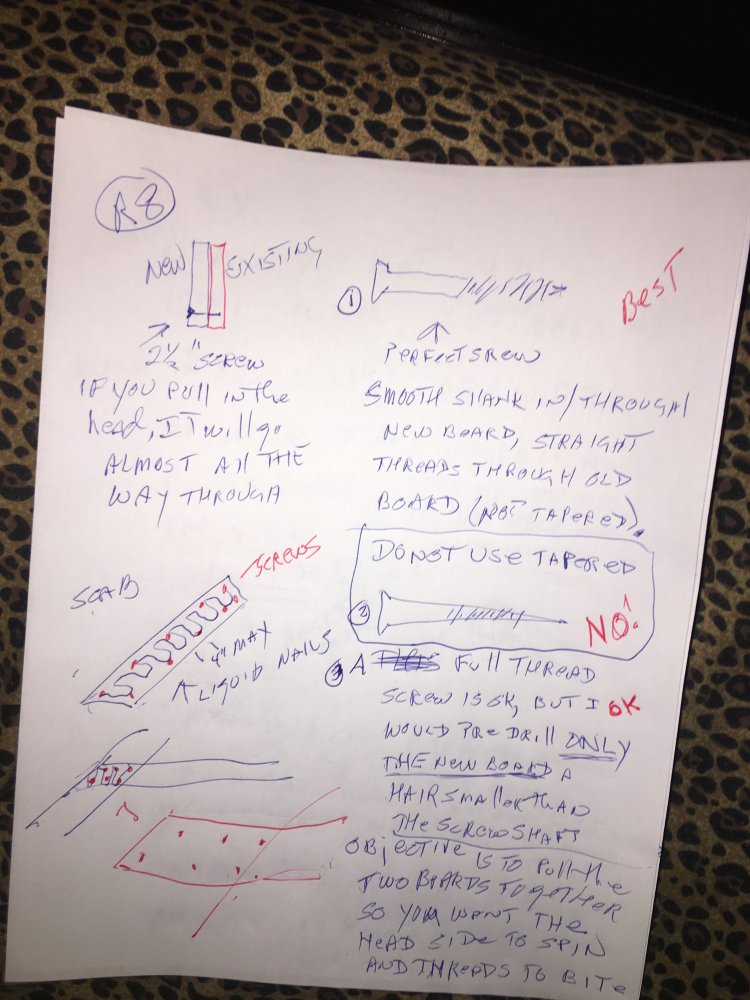 R8
NEW EXISTING
2½" SCREW
IF YOU PULL IN the
head, IT will go
ALMOST All THE
WAY THROUGH
① BEST
PERFECT SREW
SMOOTH SHANK IN/THROUGH
NEW BOARD, STRAIGHT
THREADS THROUGH OLD
BOARD (NOT TAPERED).
DO NOT USE TAPERED
② NO!
③ A FULL THREAD
SCREW IS OK, BUT I OK
WOULD PRE DRILL ONLY
THE NEW BOARD A
HAIR SMALLER THAN
THE SCREW SHAFT
OBJECTIVE IS TO PULL THE
TWO BOARDS TOGETHER
SO YOU WANT THE
HEAD SIDE TO SPIN
AND THREADS TO BITE
SCAB SCREWS
4" MAX
LIQUID NAILS